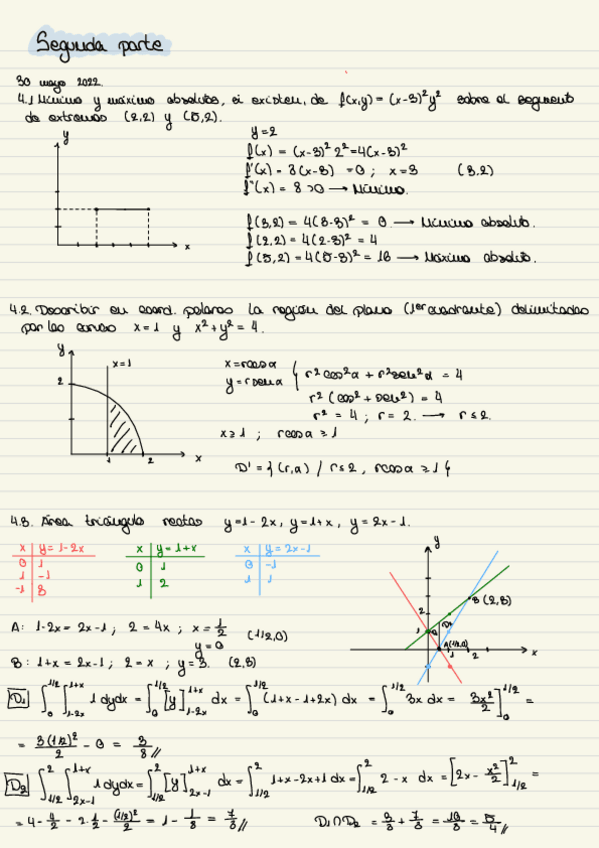 Segunda parte
30 mayo 2022.
4.1 Mínimo y máximo absolutos, si existen, de f(x,y) = (x-3)²y² sobre el segmento
de extremos (2,2) y (5,2).
y
x
y=2
f(x) = (x-3)² 2² = 4(x-3)²
f'(x) = 8(x-3) = 0 ; x=3 (3,2)
f''(x) = 8 > 0 → Mínimo.
f(3,2) = 4(3-3)² = 0 → Mínimo absoluto.
f(2,2) = 4(2-3)² = 4
f(5,2) = 4(5-3)² = 16 → Máximo absoluto.
4.2. Describir en coord. polares la región del plano (1er cuadrante) delimitadas
por las curvas x=1 y x²+y² = 4.
y
x=1
2
1 2 x
x=rcosα
y=rsenα { r²cos²α + r²sen²α = 4
r² (cos² + sen²) = 4
r² = 4 ; r = 2. → r≤2.
x≥1 ; rcosα ≥ 1
D' = { (r,α) / r≤2 , rcosα ≥ 1 }
4.3. Área triángulo rectas y=1-2x, y=1+x, y=2x-1.
x | y=1-2x
0 | 1
1 | -1
-1 | 3
x | y=1+x
0 | 1
1 | 2
x | y=2x-1
0 | -1
1 | 1
y
B (2,3)
2
1
D₂
D₁
A(1/2,0)
1 2 x
A: 1-2x = 2x-1 ; 2 = 4x ; x = 1/2 (1/2,0)
y = 0
B: 1+x = 2x-1 ; 2 = x ; y=3. (2,3)
D₁ ∫₀^{1/2} ∫_{1-2x}^{1+x} 1 dydx = ∫₀^{1/2} [y]_{1-2x}^{1+x} dx = ∫₀^{1/2} (1+x-1+2x) dx = ∫₀^{1/2} 3x dx = 3x²/2 ]₀^{1/2} =
= 3(1/2)²/2 - 0 = 3/8 //
D₂ ∫_{1/2}^{2} ∫_{2x-1}^{1+x} 1 dydx = ∫_{1/2}^{2} [y]_{2x-1}^{1+x} dx = ∫_{1/2}^{2} 1+x-2x+1 dx = ∫_{1/2}^{2} 2-x dx = [2x - x²/2]_{1/2}^{2} =